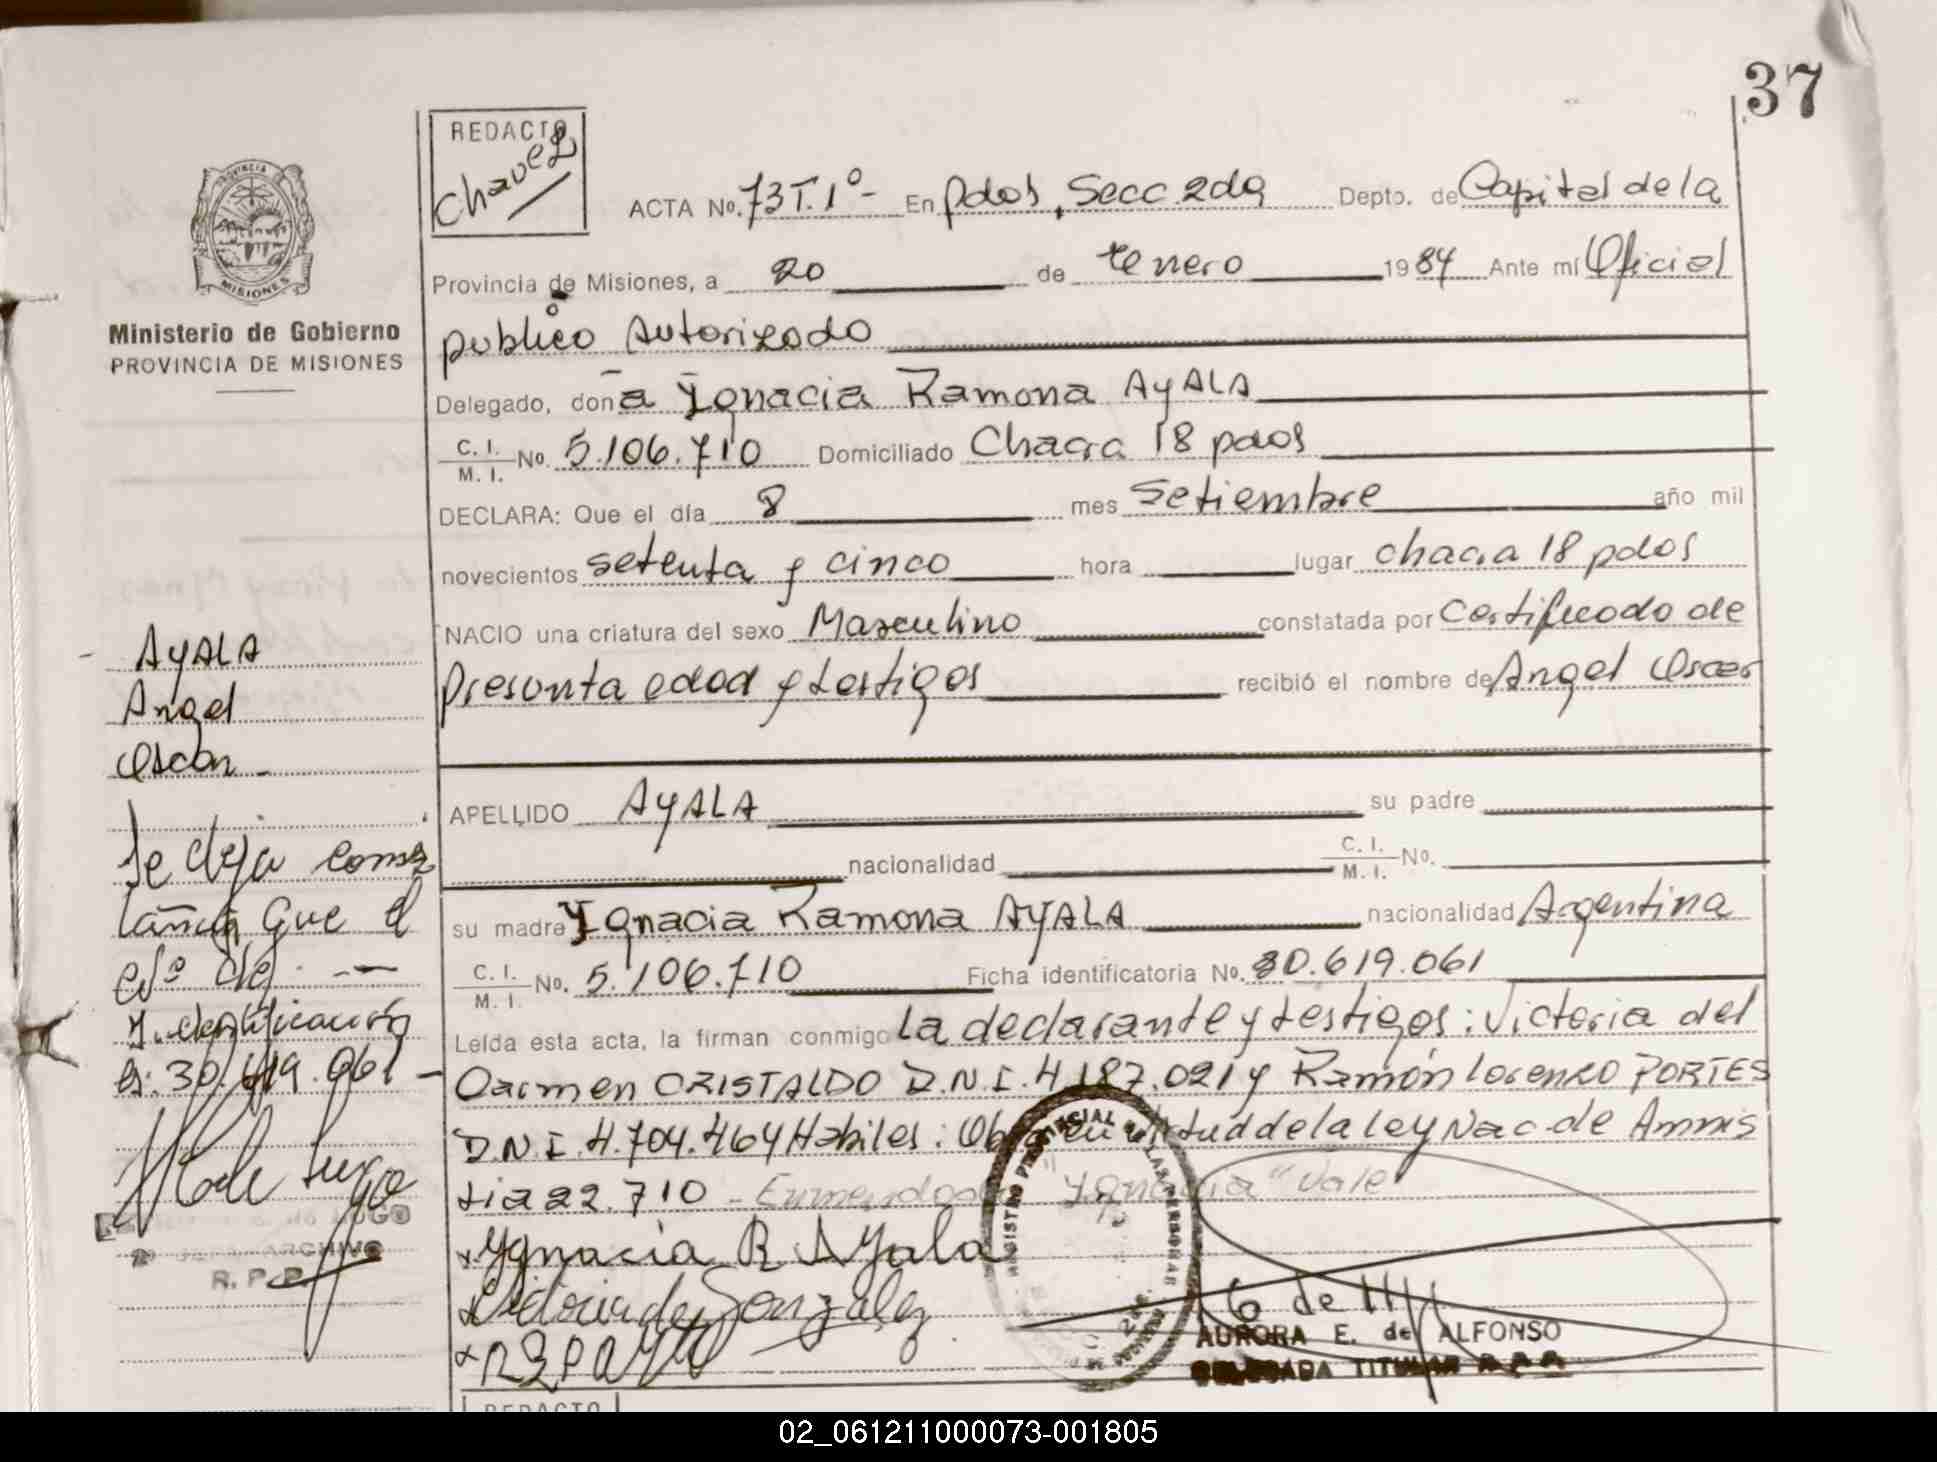 37
REDACTO
Chavez
ACTA No. 73 T. 1º - En pdas, Secc 2da Depto. de Capital de la
Provincia de Misiones, a 20 de Enero 1984 Ante mí Oficial
publico Autorizado
Delegado, dona Ygnacia Ramona AyALA
C. I. / M. I. No. 5.106.710 Domiciliado Chacra 18 pdas
DECLARA: Que el día 8 mes Setiembre año mil
novecientos setenta y cinco hora lugar chacra 18 pdas
NACIO una criatura del sexo Masculino constatada por Certificado de
Presunta edad y testigos recibió el nombre de Angel Oscar
APELLIDO AYALA su padre
nacionalidad C. I. / M. I. No.
su madre Ygnacia Ramona AYALA nacionalidad Argentina
C. I. / M. I. No. 5.106.710 Ficha identificatoria No. 30.619.061
Leída esta acta, la firman conmigo La declarante y testigos: Victoria del
Carmen CRISTALDO D.N.I. 4.187.021 y Ramón Lorenzo PORTES
D.N.I. 4.704.464 Habiles: Obs en virtud de la ley Nac. de Amnis
tia 22.710 - Enmendado "Ygnacia" Vale
Ygnacia R. Ayala
Victoria de Gonzalez
6 de
AURORA E. de ALFONSO
DELEGADA TITULAR
PROVINCIA
MISIONES
Ministerio de Gobierno
PROVINCIA DE MISIONES
AyALA
Angel
Oscar -
Se deja cons
tancia que el
Nº de
Y. dentificación
es: 30.619.061 -
LUGO
ARCHIVO
R. P. P.
REDACTO
02_061211000073-001805